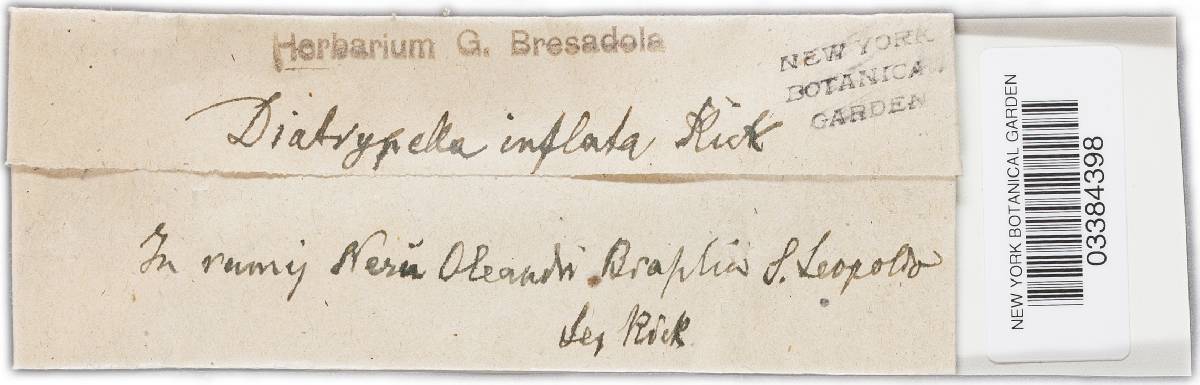 Herbarium G. Bresadola
NEW YORK
BOTANICAL
GARDEN
Diatrypella inflata Rick
In ramis Nerii Oleandri Brasilia S. Leopoldo
leg Rick
NEW YORK BOTANICAL GARDEN
03384398